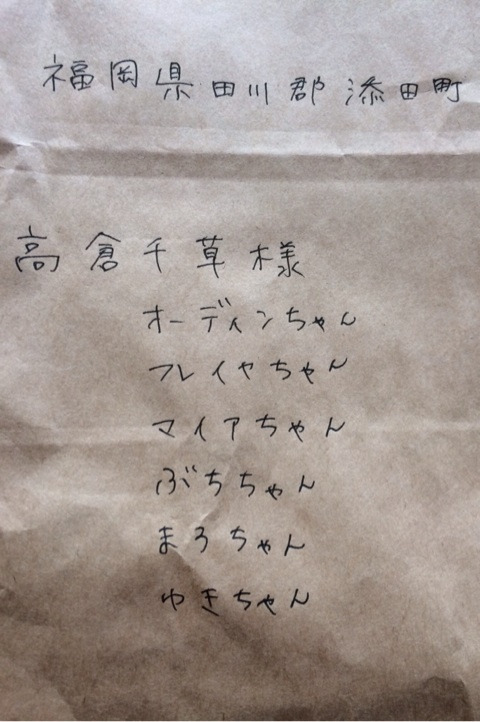 福岡県田川郡添田町
高倉千草様
オーディンちゃん
フレイヤちゃん
マイアちゃん
ぶちちゃん
まろちゃん
ゆきちゃん